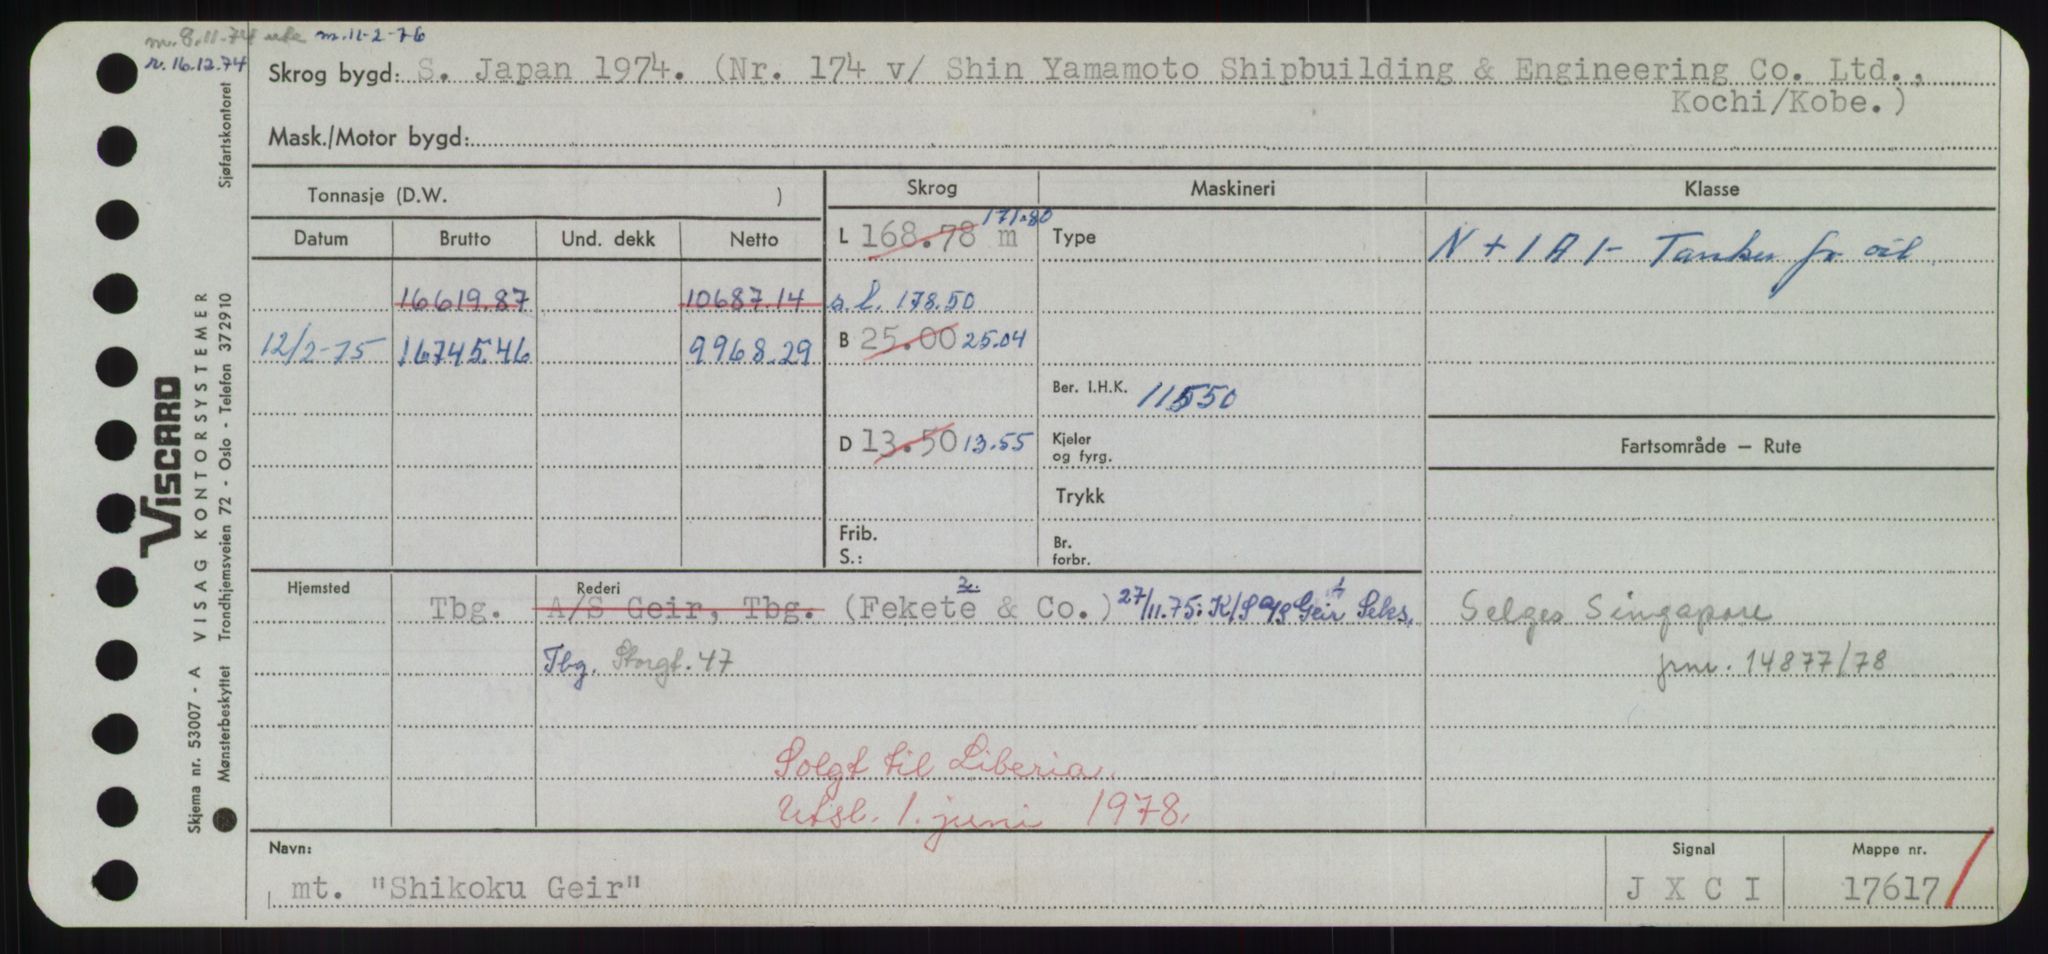 m. 8.11-74 ute m. 11-2-76
r. 16.12.74
Skrog bygd: S. Japan 1974. (Nr. 174 v/ Shin Yamamoto Shipbuilding & Engineering Co. Ltd.,
Kochi/Kobe.)
Mask./Motor bygd:
Tonnasje (D.W. )
Skrog Maskineri Klasse
Datum Brutto Und. dekk Netto
L 168.78 m 171.80 Type
N + 1 A 1 - Tanker for oil
16619.87 10687.14 s.l. 178.50
12/2-75 16745.46 9968.29 B 25.00 25.04
Ber. I.H.K. 11550
D 13.50 13.55 Kjeler og fyrg.
Fartsområde — Rute
Trykk
Frib.
S.:
Br. forbr.
Hjemsted Rederi
Tbg. A/S Geir, Tbg. (Fekete & Co.) 27/11.75: K/S A/S Geir Seks,
Tbg. Storgt. 47
Selges Singapore
jrnr. 14877/78
Solgt til Liberia.
Utsl. 1. juni 1978.
Navn: Signal Mappe nr.
mt. "Shikoku Geir" J X C I 17617
VISCARD
VISAG KONTORSYSTEMER
Skjema nr. 53007 - A
Mønsterbeskyttet Trondhjemsveien 72 - Oslo - Telefon 372910 Sjøfartskontoret